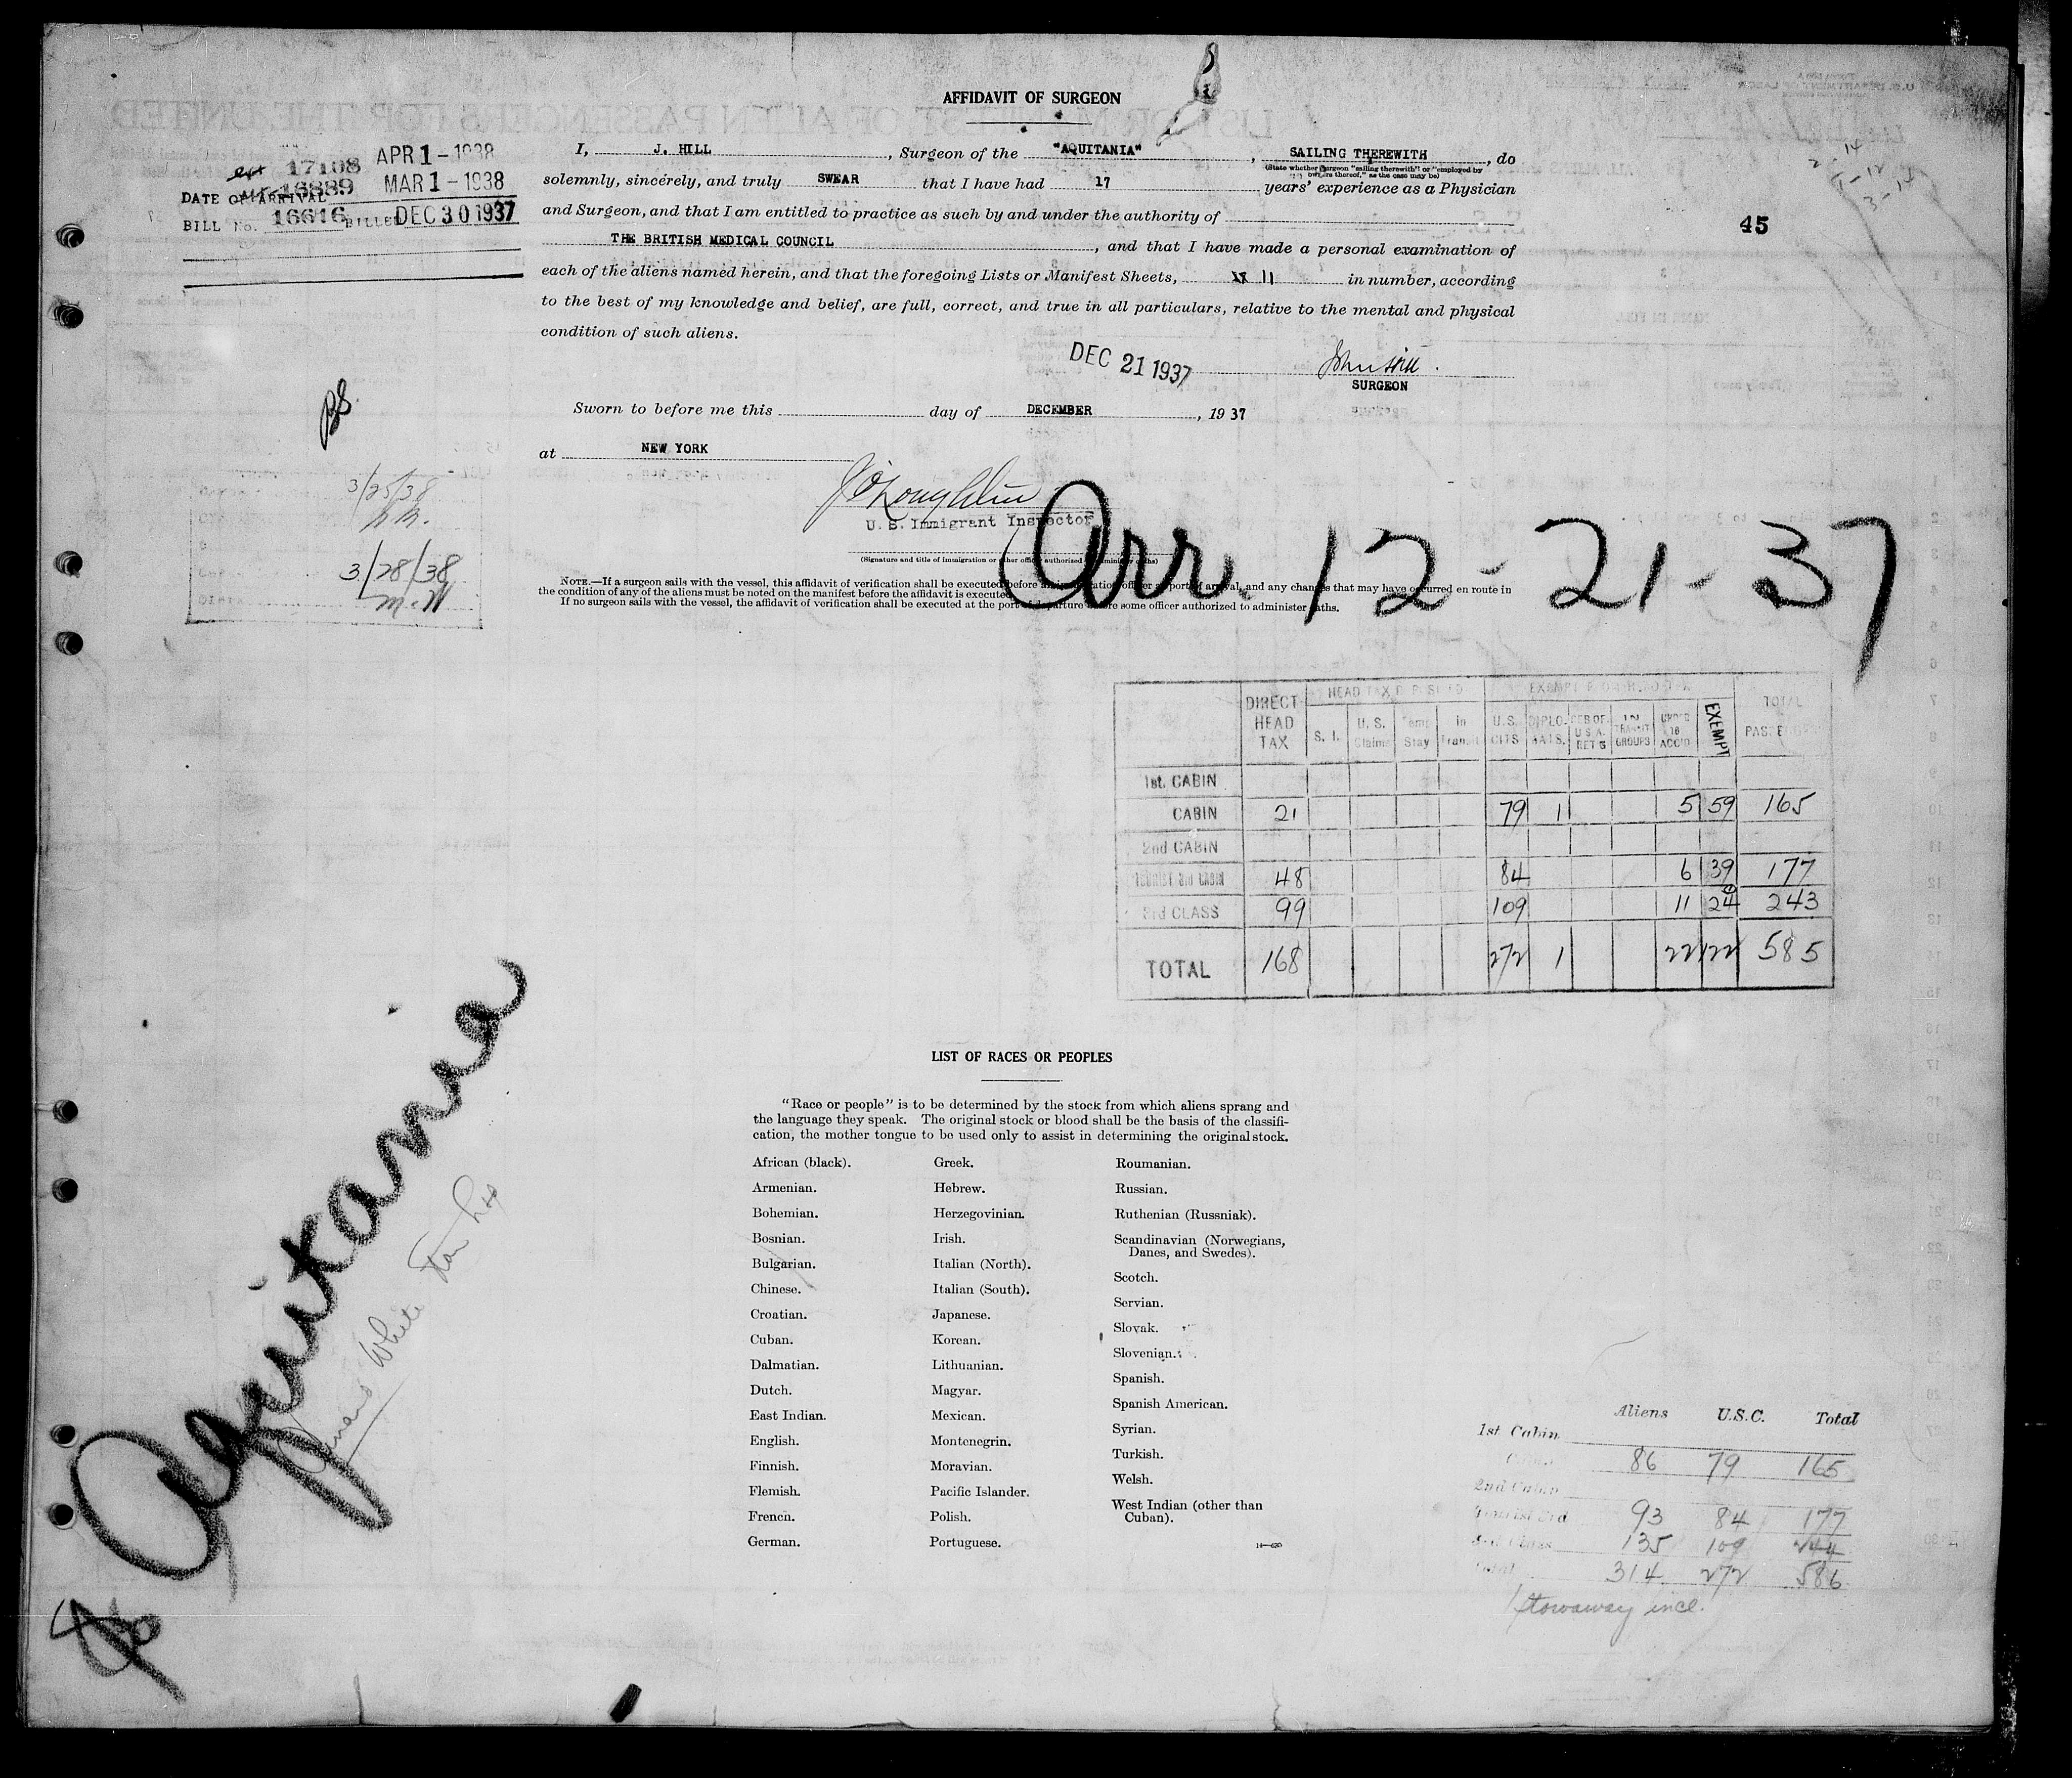 AFFIDAVIT OF SURGEON
17108 APR 1-1938
16889 MAR 1-1938
DATE OF ARRIVAL
BILL No. 16616 BILLED DEC 30 1937
45
I, J. HILL, Surgeon of the "AQUITANIA", SAILING THEREWITH, do
(State whether surgeon "sailing therewith" or "employed by
owners thereof," as the case may be)
solemnly, sincerely, and truly SWEAR that I have had 17 years' experience as a Physician
and Surgeon, and that I am entitled to practice as such by and under the authority of
THE BRITISH MEDICAL COUNCIL, and that I have made a personal examination of
each of the aliens named herein, and that the foregoing Lists or Manifest Sheets, 11 in number, according
to the best of my knowledge and belief, are full, correct, and true in all particulars, relative to the mental and physical
condition of such aliens.
DEC 21 1937
John Hill.
SURGEON
Sworn to before me this day of DECEMBER, 1937
at NEW YORK
J O'Loughlin
U. S. Immigrant Inspector
3/25/38
3/28/38
(Signature and title of immigration or other officer authorized to administer oaths)
Arr. 12-21-37
NOTE.—If a surgeon sails with the vessel, this affidavit of verification shall be executed before an immigration officer at port of arrival, and any changes that may have occurred en route in
the condition of any of the aliens must be noted on the manifest before the affidavit is executed.
If no surgeon sails with the vessel, the affidavit of verification shall be executed at the port of departure before some officer authorized to administer oaths.
DIRECT HEAD TAX HEAD TAX DEPOSITED EXEMPT FROM HEAD TAX TOTAL PASSENGERS
S. I. U. S. Claims Temp Stay In Transit U.S. CITS DIPLOMATS. RES OF U.S.A. RET'G IN TRANSIT GROUPS UNDER 16 ACC'D EXEMPT
1st. CABIN
CABIN 21 79 1 5 59 165
2nd CABIN
TOURIST 3rd CABIN 48 84 6 39 177
3rd CLASS 99 109 11 24 243
TOTAL 168 272 1 22 122 585
LIST OF RACES OR PEOPLES
"Race or people" is to be determined by the stock from which aliens sprang and
the language they speak. The original stock or blood shall be the basis of the classifi-
cation, the mother tongue to be used only to assist in determining the original stock.
African (black).
Armenian.
Bohemian.
Bosnian.
Bulgarian.
Chinese.
Croatian.
Cuban.
Dalmatian.
Dutch.
East Indian.
English.
Finnish.
Flemish.
French.
German.
Greek.
Hebrew.
Herzegovinian.
Irish.
Italian (North).
Italian (South).
Japanese.
Korean.
Lithuanian.
Magyar.
Mexican.
Montenegrin.
Moravian.
Pacific Islander.
Polish.
Portuguese.
Roumanian.
Russian.
Ruthenian (Russniak).
Scandinavian (Norwegians,
Danes, and Swedes).
Scotch.
Servian.
Slovak.
Slovenian.
Spanish.
Spanish American.
Syrian.
Turkish.
Welsh.
West Indian (other than
Cuban).
Aquitania
Cunard White Star
Aliens U.S.C. Total
1st Cabin
86 79 165
2nd Cabin
Tourist 3rd 93 84 177
3rd Class 135 109 244
Total 314 272 586
1 stowaway incl.